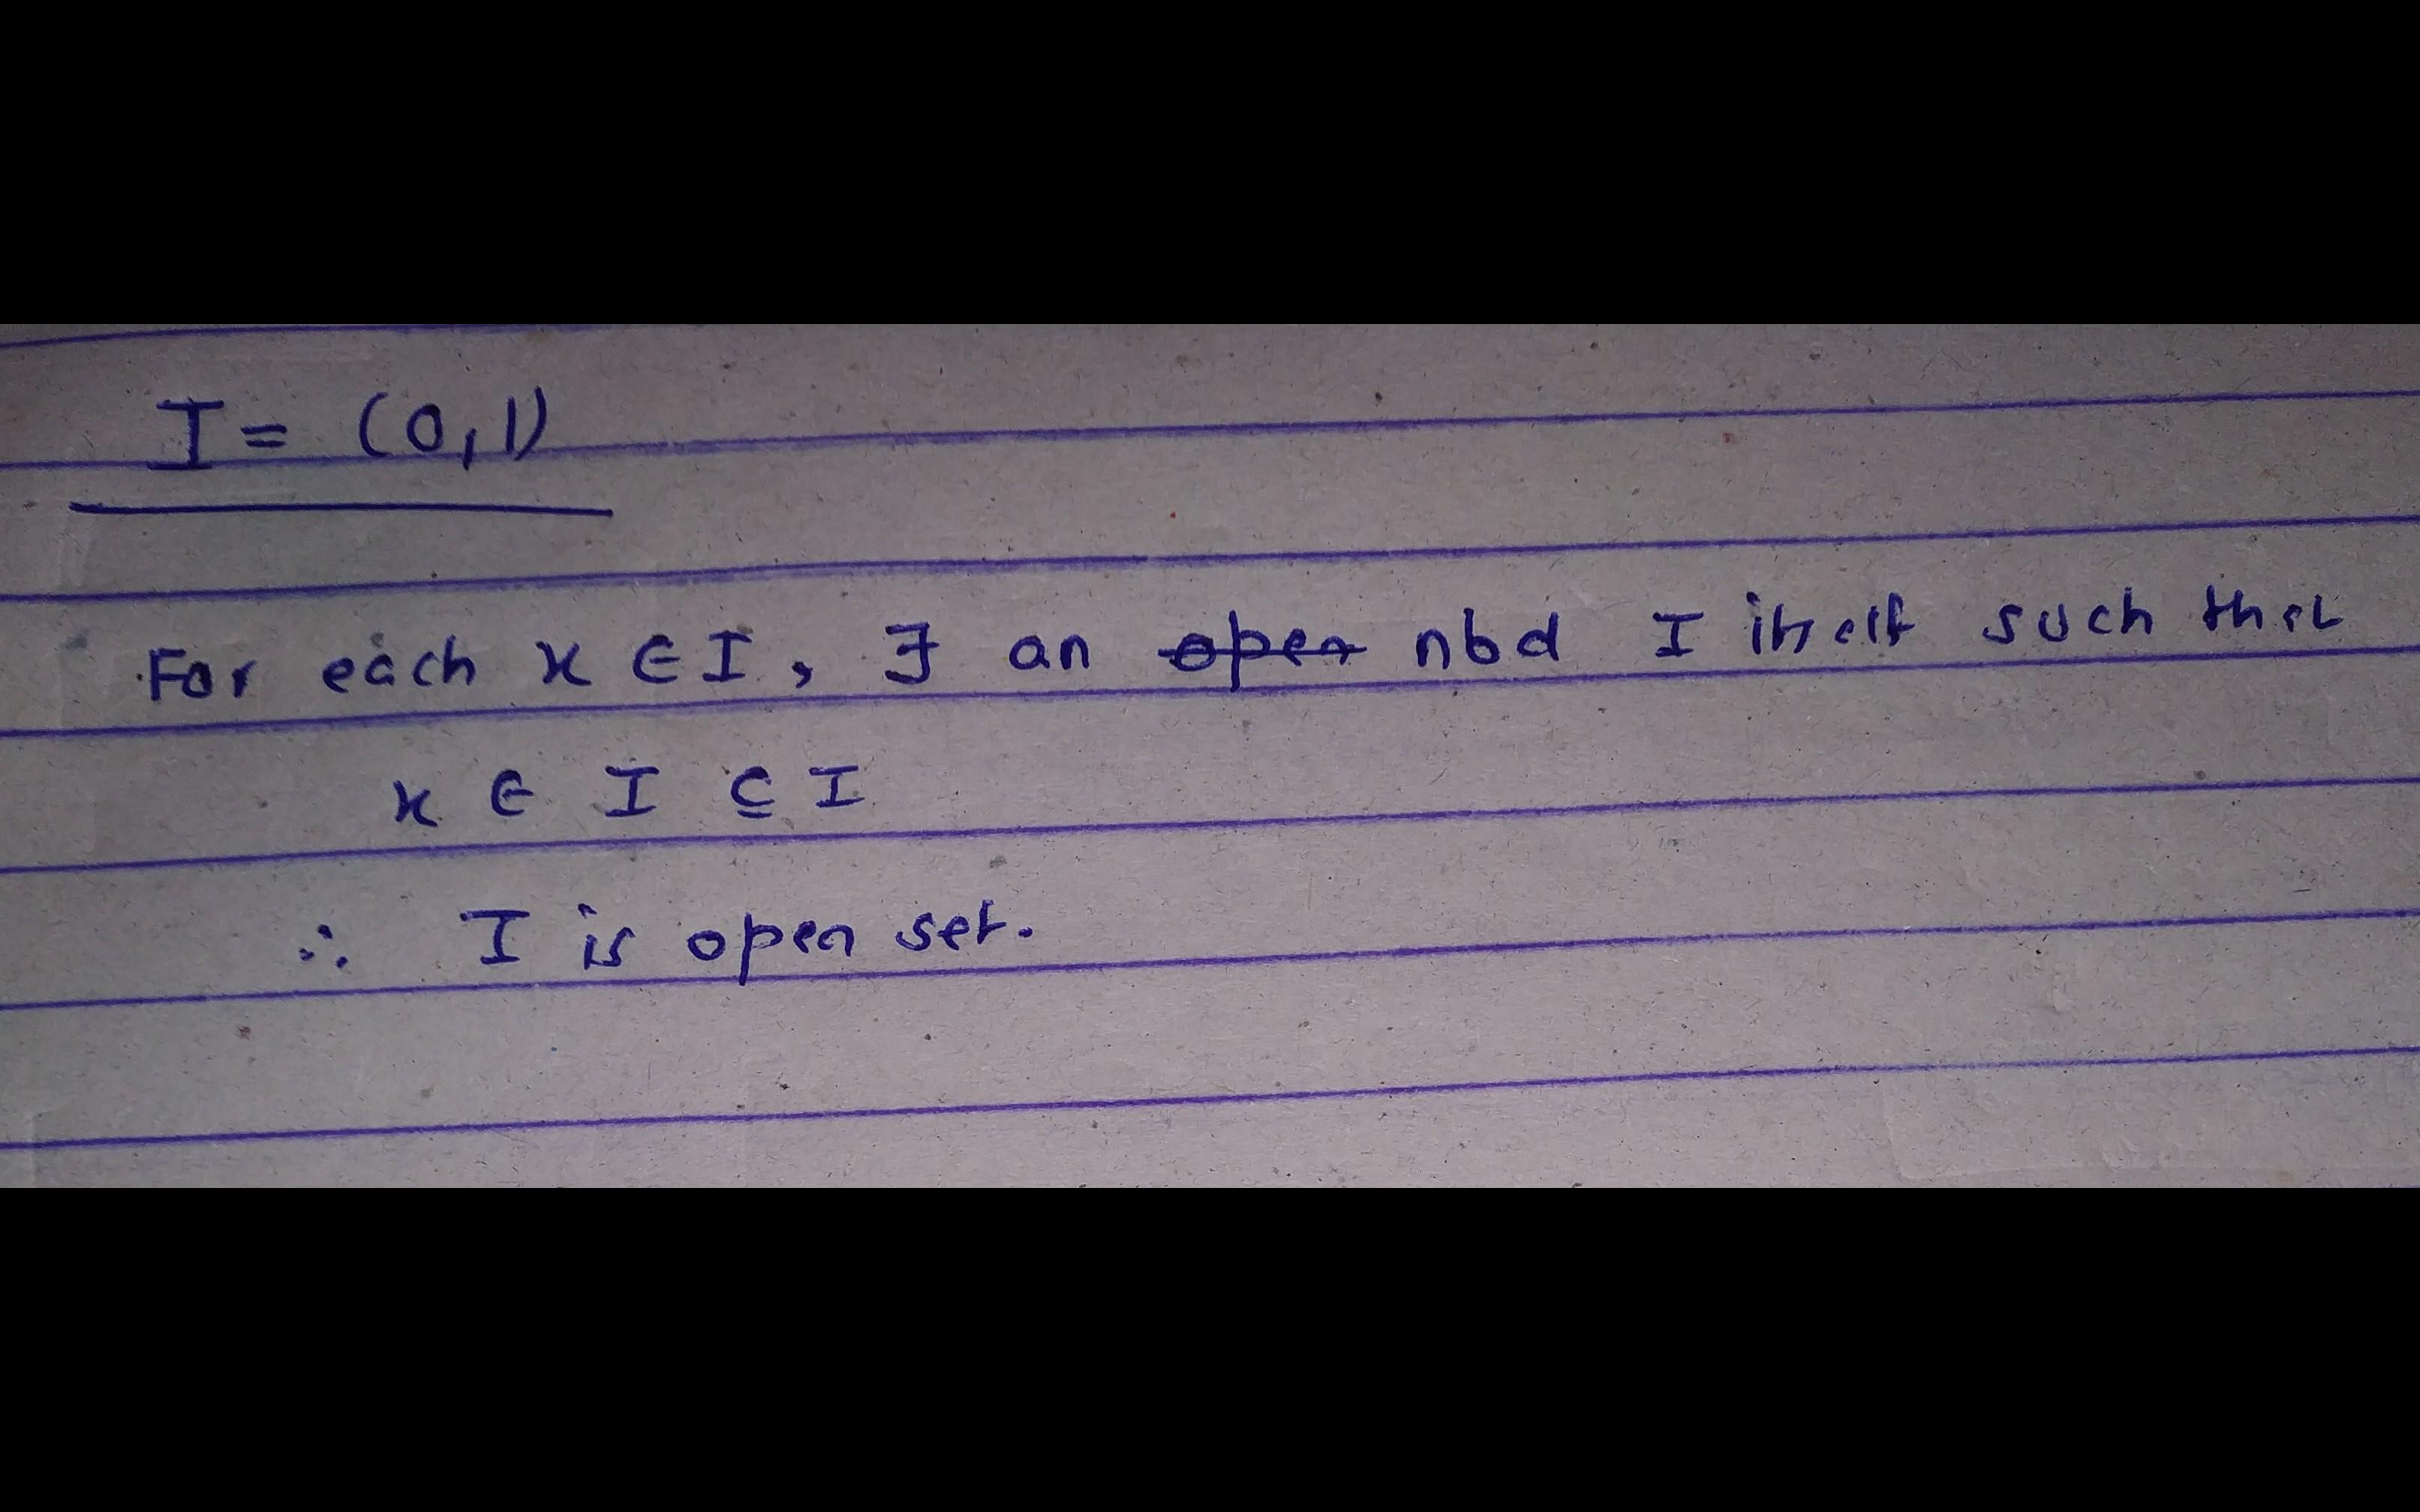 I = (0,1)
For each x ∈ I, ∃ an open nbd I itself such that
x ∈ I ⊆ I
∴ I is open set.